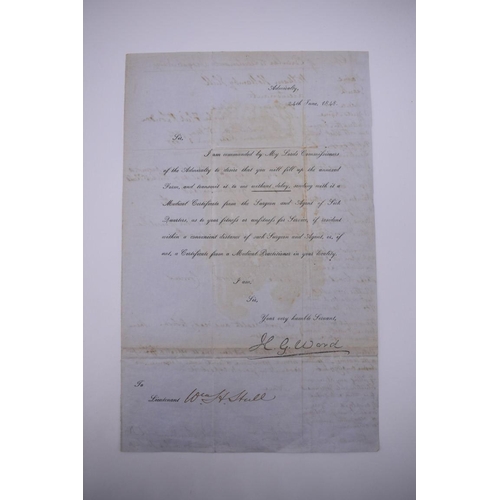 Admiralty,
24th June, 1848.
Sir,
I am commanded by My Lords Commissioners
of the Admiralty to desire that you will fill up the annexed
Form, and transmit it to me without delay, sending with it a
Medical Certificate from the Surgeon and Agent of Sick
Quarters, as to your fitness or unfitness for Service, if resident
within a convenient distance of such Surgeon and Agent, or, if
not, a Certificate from a Medical Practitioner in your Vicinity.
I am,
Sir,
Your very humble Servant,
H. G. Ward
To
Lieutenant Wm H. Hull